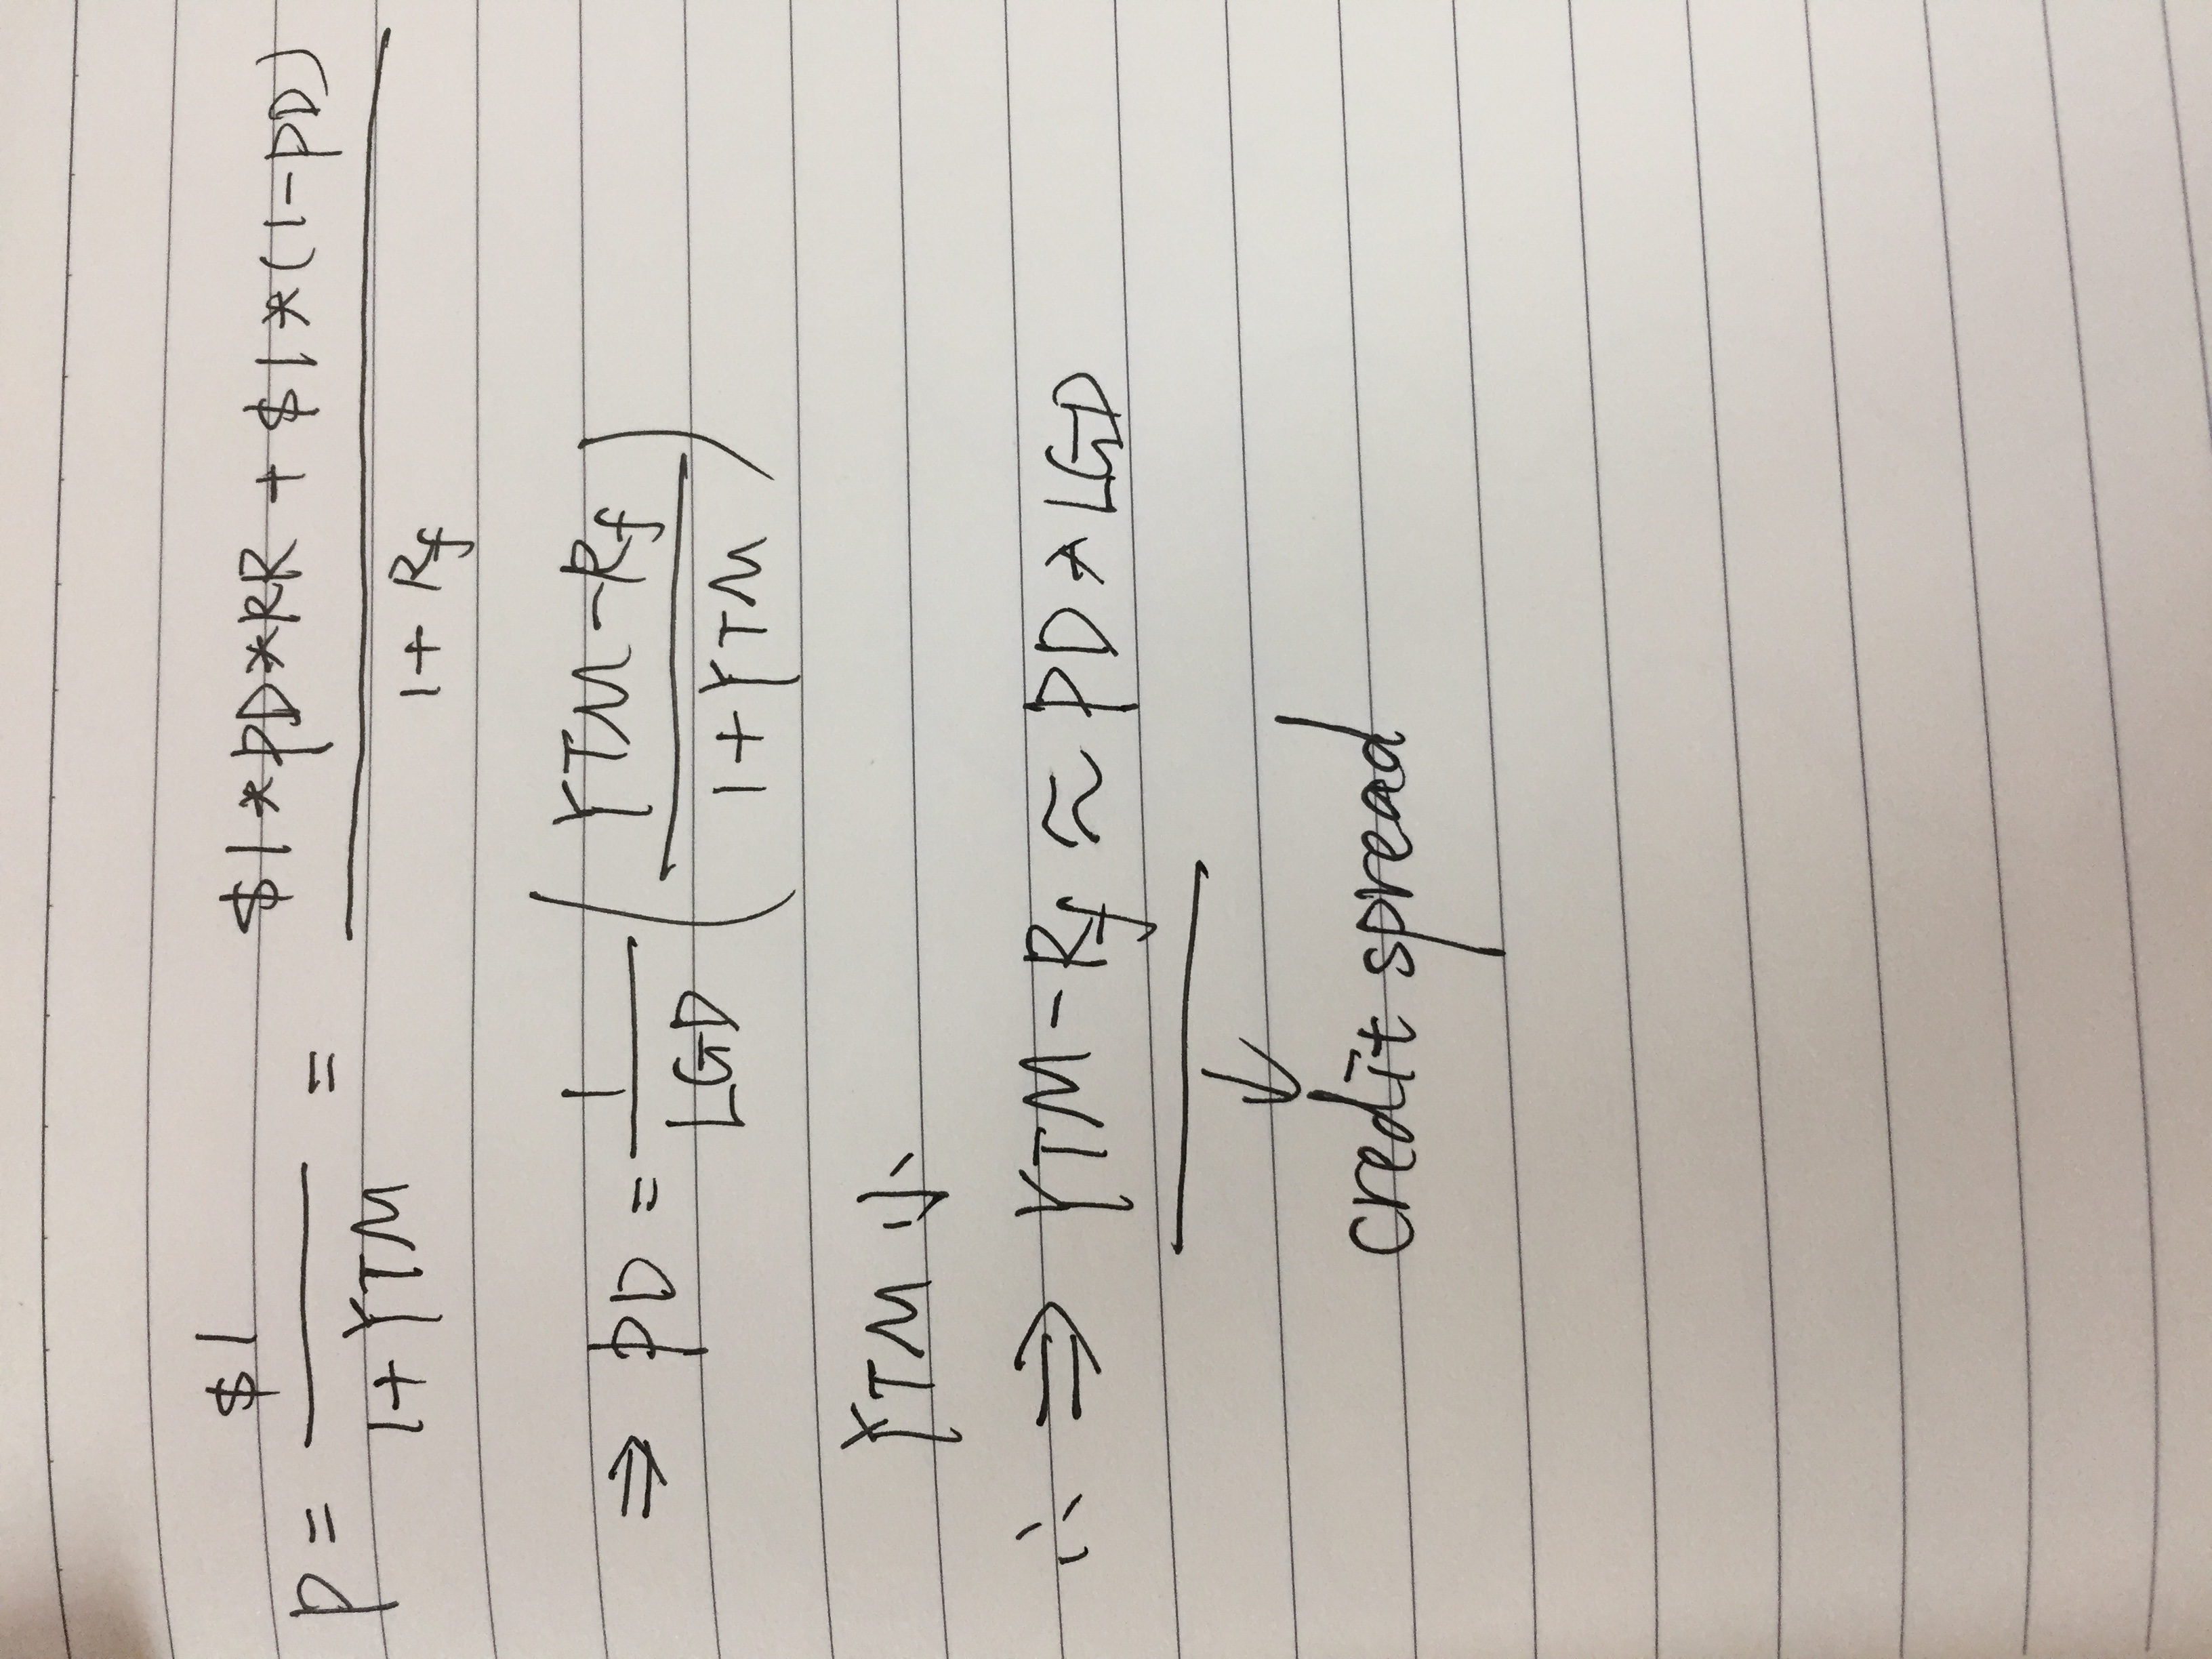 P = $1 / 1+YTM = $1*PD*RR + $1*(1-PD) / 1+Rf
⇒ PD = 1/LGD (YTM-Rf / 1+YTM)
YTM 小
∴ ⇒ YTM-Rf ≈ PD*LGD
↓
credit spread